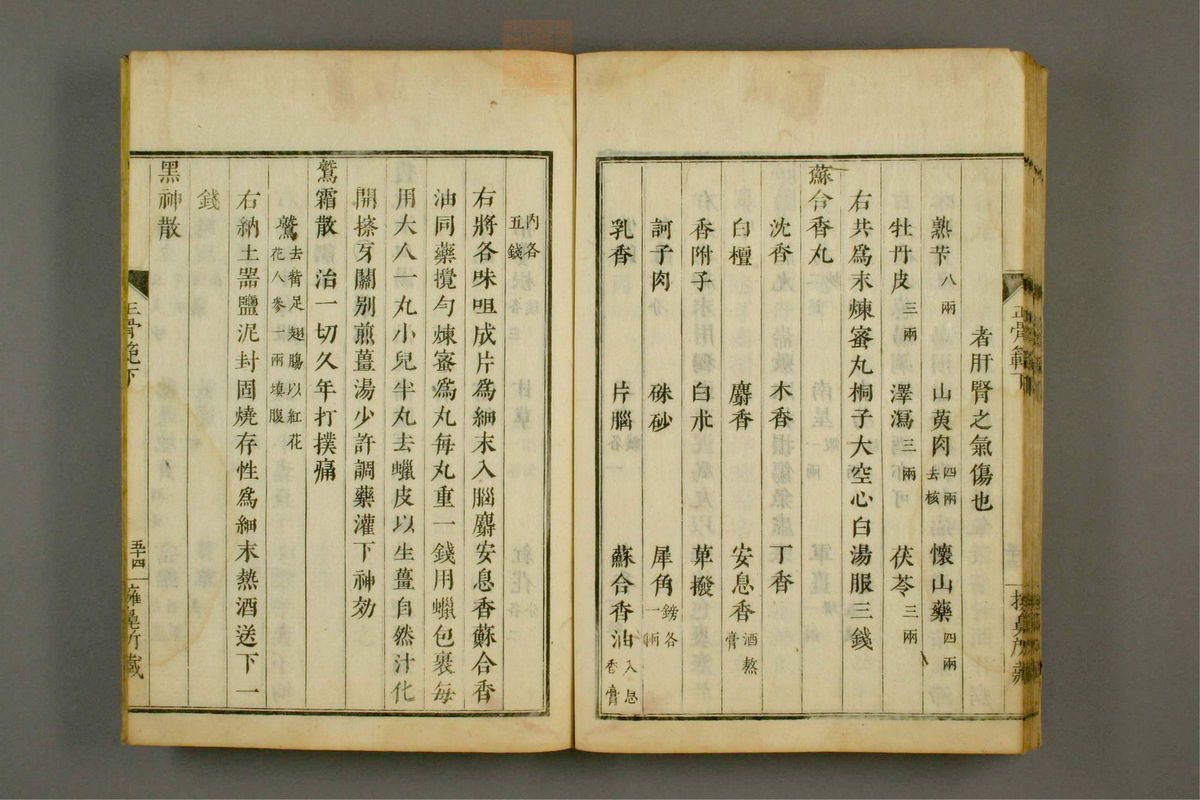 者肝腎之氣傷也
熟芐八兩 山萸肉四兩去核 懷山藥四兩
牡丹皮三兩 澤瀉三兩 茯苓三兩
右共爲末煉蜜丸桐子大空心白湯服三錢
蘇合香丸
沈香 木香 丁香
白檀 麝香 安息香酒熬膏
香附子 白朮 蓽撥
訶子肉 硃砂 犀角鎊各一兩
乳香 片腦 蘇合香油入息香膏
內各五錢
右將各味咀成片爲細末入腦麝安息香蘇合香
油同藥攪勻煉蜜爲丸每丸重一錢用蠟包裹每
用大人一丸小兒半丸去蠟皮以生薑自然汁化
開搽牙關别煎薑湯少許調藥灌下神効
鷲霜散 治一切久年打撲痛
鷲去觜足翅腸以紅花花人參一兩填腹
右納土器鹽泥封固燒存性爲細末熱酒送下一
錢
黑神散
正骨範下
五十四
正骨範下